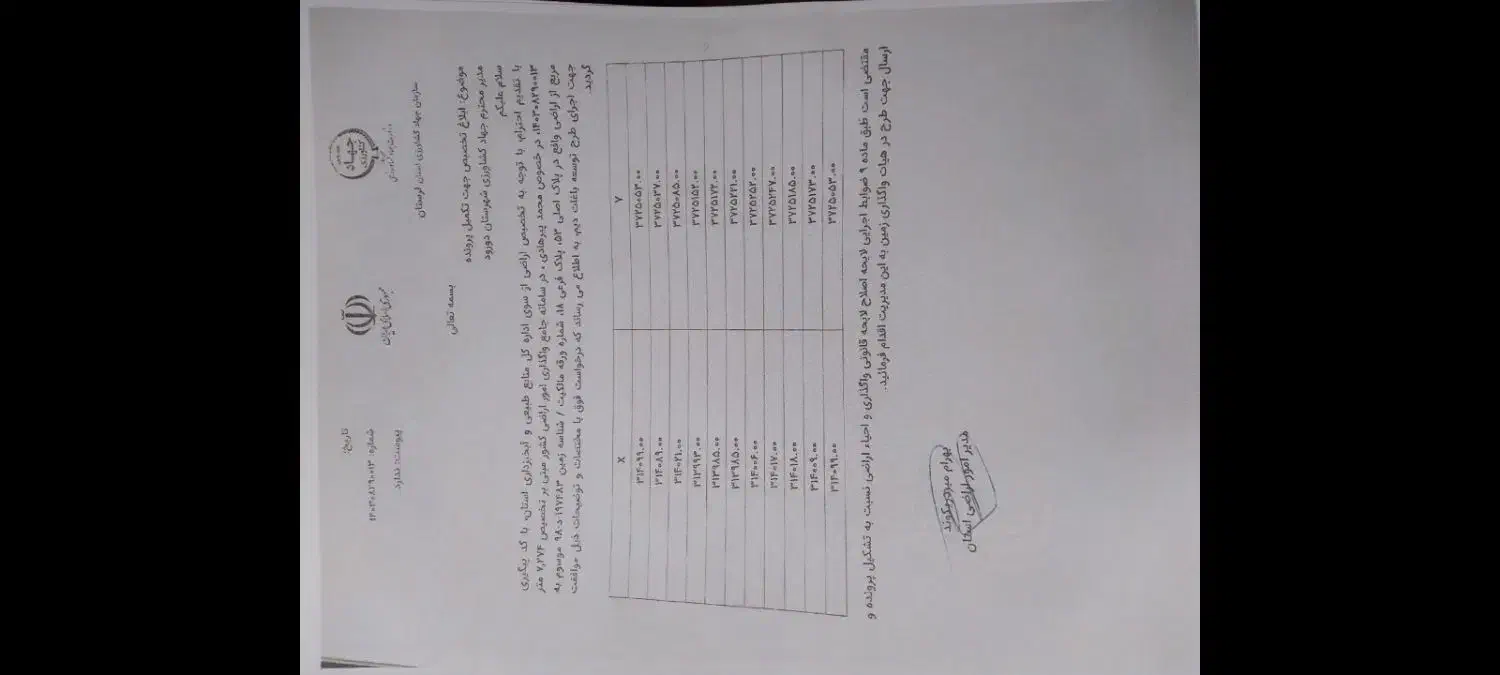 جهاد
کشاورزی
سازمان جهاد کشاورزی استان لرستان
جمهوری اسلامی ایران
تاریخ:
شماره: ۱۴۰۳۰۸۲۹۰۰۱۳
پیوست: ندارد
بسمه تعالی
موضوع: ابلاغ تخصیص جهت تکمیل پرونده
مدیر محترم جهاد کشاورزی شهرستان دورود
سلام علیکم
با تقدیم احترام، با توجه به تخصیص اراضی از سوی اداره کل منابع طبیعی و آبخیزداری استان، با کد پیگیری
۱۴۰۳۰۸۲۹۰۰۱۳، در خصوص محمد پیرهادی ، در سامانه جامع واگذاری امور اراضی کشور مبنی بر تخصیص ۷,۲۷۴ متر
مربع از اراضی واقع در پلاک اصلی ۵۳، پلاک فرعی ۱۸، شماره ورقه مالکیت / شناسه زمین ۱۹۷۴۸۳-د-۹۸ موسوم به
جهت اجرای طرح توسعه باغات دیم، به اطلاع می رساند که درخواست فوق با مختصات و توضیحات ذیل موافقت
گردید.
X Y
۳۱۴۰۹۹.۰۰ ۳۷۲۵۰۵۳.۰۰
۳۱۴۰۸۹.۰۰ ۳۷۲۵۰۳۷.۰۰
۳۱۴۰۲۱.۰۰ ۳۷۲۵۰۸۵.۰۰
۳۱۳۹۹۳.۰۰ ۳۷۲۵۱۵۲.۰۰
۳۱۳۹۸۵.۰۰ ۳۷۲۵۱۷۲.۰۰
۳۱۳۹۸۵.۰۰ ۳۷۲۵۲۲۱.۰۰
۳۱۴۰۰۶.۰۰ ۳۷۲۵۲۵۲.۰۰
۳۱۴۰۱۷.۰۰ ۳۷۲۵۲۴۷.۰۰
۳۱۴۰۱۸.۰۰ ۳۷۲۵۱۸۵.۰۰
۳۱۴۰۰۹.۰۰ ۳۷۲۵۱۷۳.۰۰
۳۱۴۰۹۹.۰۰ ۳۷۲۵۰۵۳.۰۰
مقتضی است طبق ماده ۹ ضوابط اجرایی لایحه اصلاح لایحه قانونی واگذاری و احیاء اراضی نسبت به تشکیل پرونده و
ارسال جهت طرح در هیات واگذاری زمین به این مدیریت اقدام فرمائید.
بهرام میردریکوند
مدیر امور اراضی استان